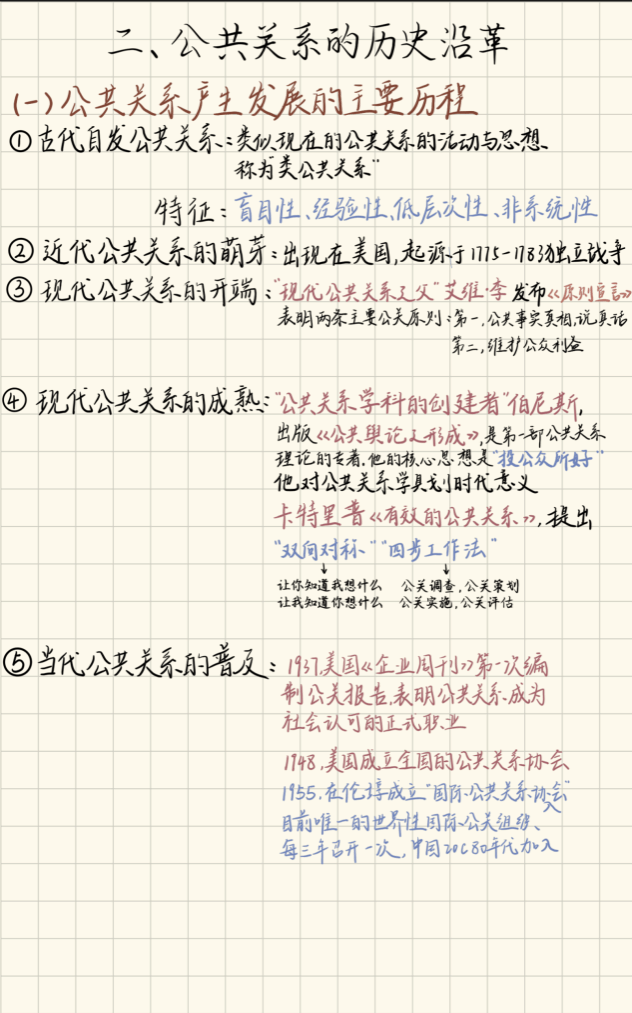 二、公共关系的历史沿革
(一)公共关系产生发展的主要历程
①古代自发公共关系:类似现在的公共关系的活动与思想、
称为"类公共关系"
特征:盲目性、经验性、低层次性、非系统性
②近代公共关系的萌芽:出现在美国,起源于1775-1783独立战争
③现代公共关系的开端:"现代公共关系之父"艾维·李发布《原则宣言》
表明两条主要公关原则:第一,公共事实真相,说真话
第二,维护公众利益
④现代公共关系的成熟:"公共关系学科的创建者"伯尼斯,
出版《公共舆论之形成》,是第一部公共关系
理论的专著.他的核心思想是"投公众所好"
他对公共关系学具划时代意义
卡特里普《有效的公共关系》,提出
"双向对称""四步工作法"
↓ ↓
让你知道我想什么 公关调查,公关策划
让我知道你想什么 公关实施,公关评估
⑤当代公共关系的普及:1937,美国《企业周刊》第一次编
制公关报告,表明公共关系成为
社会认可的正式职业
1948,美国成立全国的公共关系协会
1955.在伦敦成立"国际公共关系协会"
目前唯一的世界性国际公关组织、
每三年召开一次,中国20C80年代加入